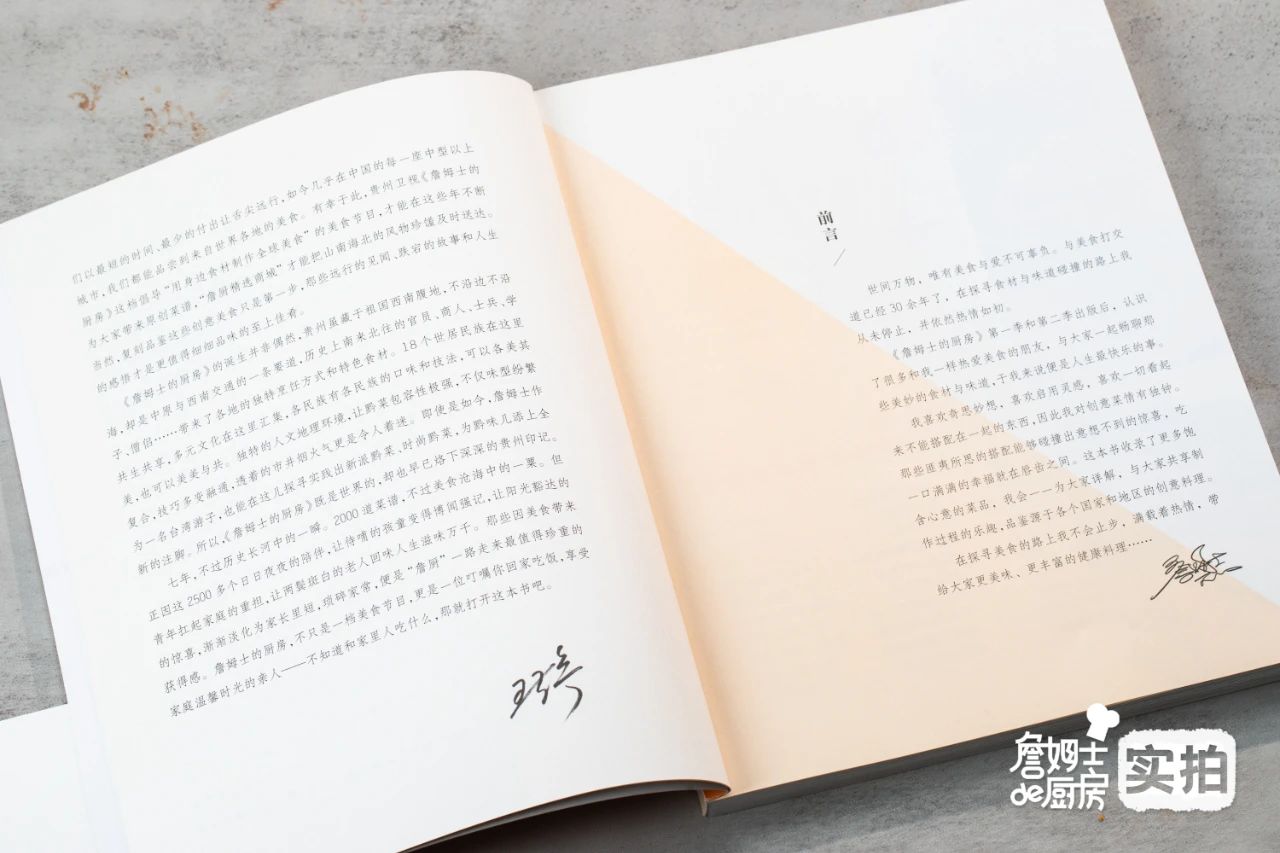 们以最短的时间、最少的付出让舌尖远行，如今几乎在中国的每一座中型以上
城市，我们都能品尝到来自世界各地的美食。有幸于此，贵州卫视《詹姆士的
厨房》这档倡导“用身边食材制作全球美食”的美食节目，才能在这些年不断
为大家带来原创菜谱，“詹厨精选商城”才能把山南海北的风物珍馐及时送达。
当然，复刻品鉴这些创意美食只是第一步，那些远行的见闻、跌宕的故事和人生
的感悟才是更值得细细品味的至上佳肴。
《詹姆士的厨房》的诞生并非偶然，贵州虽藏于祖国西南腹地，不沿边不沿
海，却是中原与西南交通的一条要道，历史上南来北往的官员、商人、士兵、学
子、僧侣……带来了各地的独特烹饪方式和特色食材。18个世居民族在这里
共生共享，多元文化在这里汇集，各民族有各民族的口味和技法，可以各美其
美，也可以美美与共。独特的人文地理环境，让黔菜包容性极强，不仅味型纷繁
复合，技巧多变融通，透着的市井烟火气更是令人着迷。即使是如今，詹姆士作
为一名台湾游子，也能在这儿探寻实践出新派黔菜、时尚黔菜，为黔味儿添上全
新的注脚。所以，《詹姆士的厨房》既是世界的，却也早已烙下深深的贵州印记。
七年，不过历史长河中的一瞬。2000道菜谱，不过美食沧海中的一粟。但
正因这2500多个日日夜夜的陪伴，让待哺的孩童变得博闻强记，让阳光豁达的
青年扛起家庭的重担，让两鬓斑白的老人回味人生滋味万千。那些因美食带来
的惊喜，渐渐淡化为家长里短，琐碎家常，便是“詹厨”一路走来最值得珍重的
获得感。詹姆士的厨房，不只是一档美食节目，更是一位叮嘱你回家吃饭，享受
家庭温馨时光的亲人——不知道和家里人吃什么，那就打开这本书吧。
前言
世间万物，唯有美食与爱不可辜负。与美食打交
道已经30余年了，在探寻食材与味道碰撞的路上我
从未停止，并依然热情如初。
《詹姆士的厨房》第一季和第二季出版后，认识
了很多和我一样热爱美食的朋友，与大家一起畅聊那
些美妙的食材与味道，于我来说便是人生最快乐的事。
我喜欢奇思妙想，喜欢启用灵感，喜欢一切看起
来不能搭配在一起的东西，因此我对创意菜情有独钟。
那些匪夷所思的搭配能够碰撞出意想不到的惊喜，吃
一口满满的幸福就在唇齿之间。这本书收录了更多饱
含心意的菜品，我会一一为大家详解，与大家共享制
作过程的乐趣，品鉴源于各个国家和地区的创意料理。
在探寻美食的路上我不会止步，满载着热情，带
给大家更美味、更丰富的健康料理……
詹姆士
de厨房
实拍